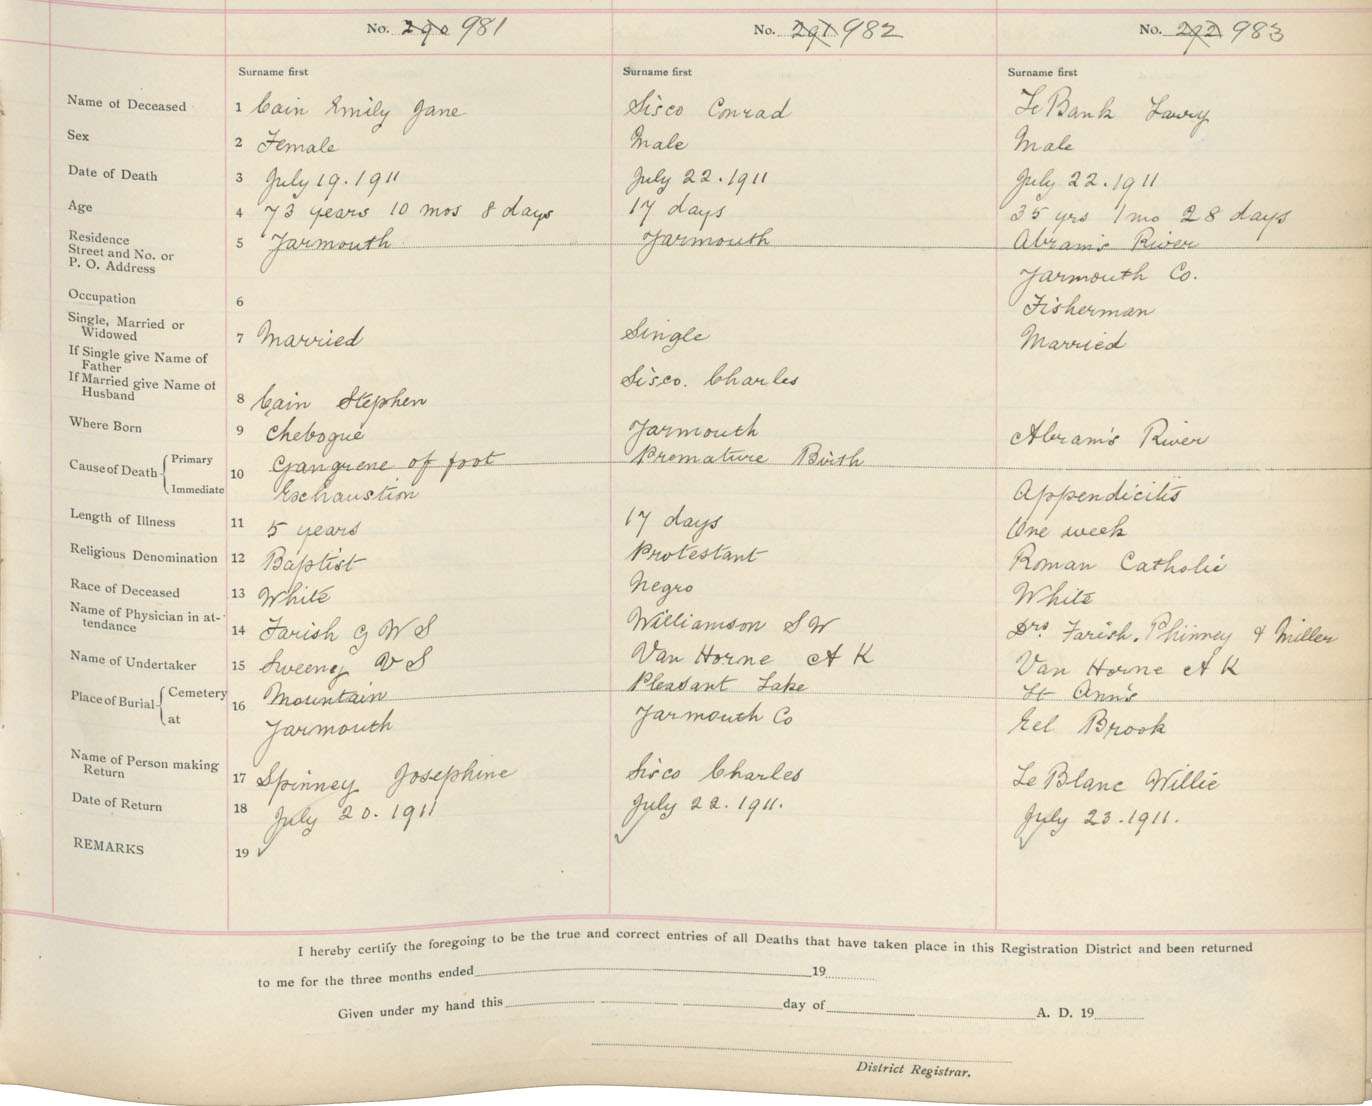 No. 290 981 No. 291 982 No. 292 983
Surname first Surname first Surname first
Name of Deceased 1 Cain Emily Jane Sisco Conrad Le Bank Lawry
Sex 2 Female Male Male
Date of Death 3 July 19. 1911 July 22. 1911 July 22. 1911
Age 4 73 years 10 mos 8 days 17 days 35 yrs 1 mo 28 days
Residence 5 Yarmouth Yarmouth Abram's River
Street and No. or
P. O. Address Yarmouth Co.
Occupation 6 Fisherman
Single, Married or
Widowed 7 Married Single Married
If Single give Name of
Father Sisco. Charles
If Married give Name of
Husband 8 Cain Stephen
Where Born 9 Chebogue Yarmouth Abram's River
Cause of Death Primary 10 Gangrene of foot Premature Birth
Immediate Exhaustion Appendicitis
Length of Illness 11 5 years 17 days One week
Religious Denomination 12 Baptist Protestant Roman Catholic
Race of Deceased 13 White Negro White
Name of Physician in at-
tendance 14 Farish G W S Williamson S W Drs. Farish. Phinney & Miller
Name of Undertaker 15 Sweeney V S Van Horne A K Van Horne A K
Place of Burial Cemetery 16 Mountain Pleasant Lake St Ann's
at Yarmouth Yarmouth Co Eel Brook
Name of Person making
Return 17 Spinney Josephine Sisco Charles Le Blanc Willie
Date of Return 18 July 20. 1911 July 22. 1911. July 23. 1911.
REMARKS 19
I hereby certify the foregoing to be the true and correct entries of all Deaths that have taken place in this Registration District and been returned
to me for the three months ended 19
Given under my hand this day of A. D. 19
District Registrar.